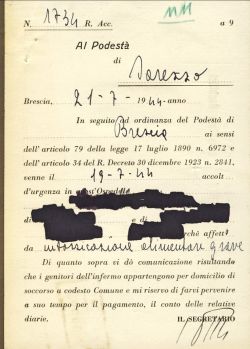 N. 1734 R. Acc. a 9
Al Podestà
di
Brescia, 21-7-1944-anno
In seguito ad ordinanza del Podestà di
Brescia ai sensi
dell'articolo 79 della legge 17 luglio 1890 n. 6972 e
dell'articolo 34 del R. Decreto 30 dicembre 1923 n. 2841,
venne il 19-7-44 accolt
d'urgenza in quest'Ospedale
e di
perchè affett
da intossicazione alimentare grave
Di quanto sopra vi dò comunicazione risultando
che i genitori dell'infermo appartengono per domicilio di
soccorso a codesto Comune e mi riservo di farvi pervenire
a suo tempo per il pagamento, il conto delle relative
diarie. IL SEGRETARIO